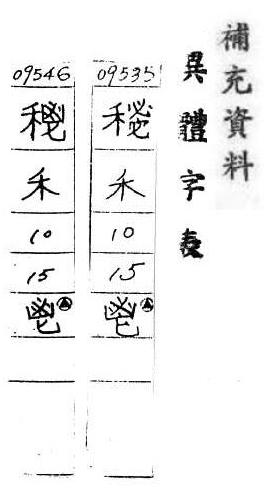 補充資料
異體字表
09535
禾
10
15
鬯
09546
禾
10
15
鬯